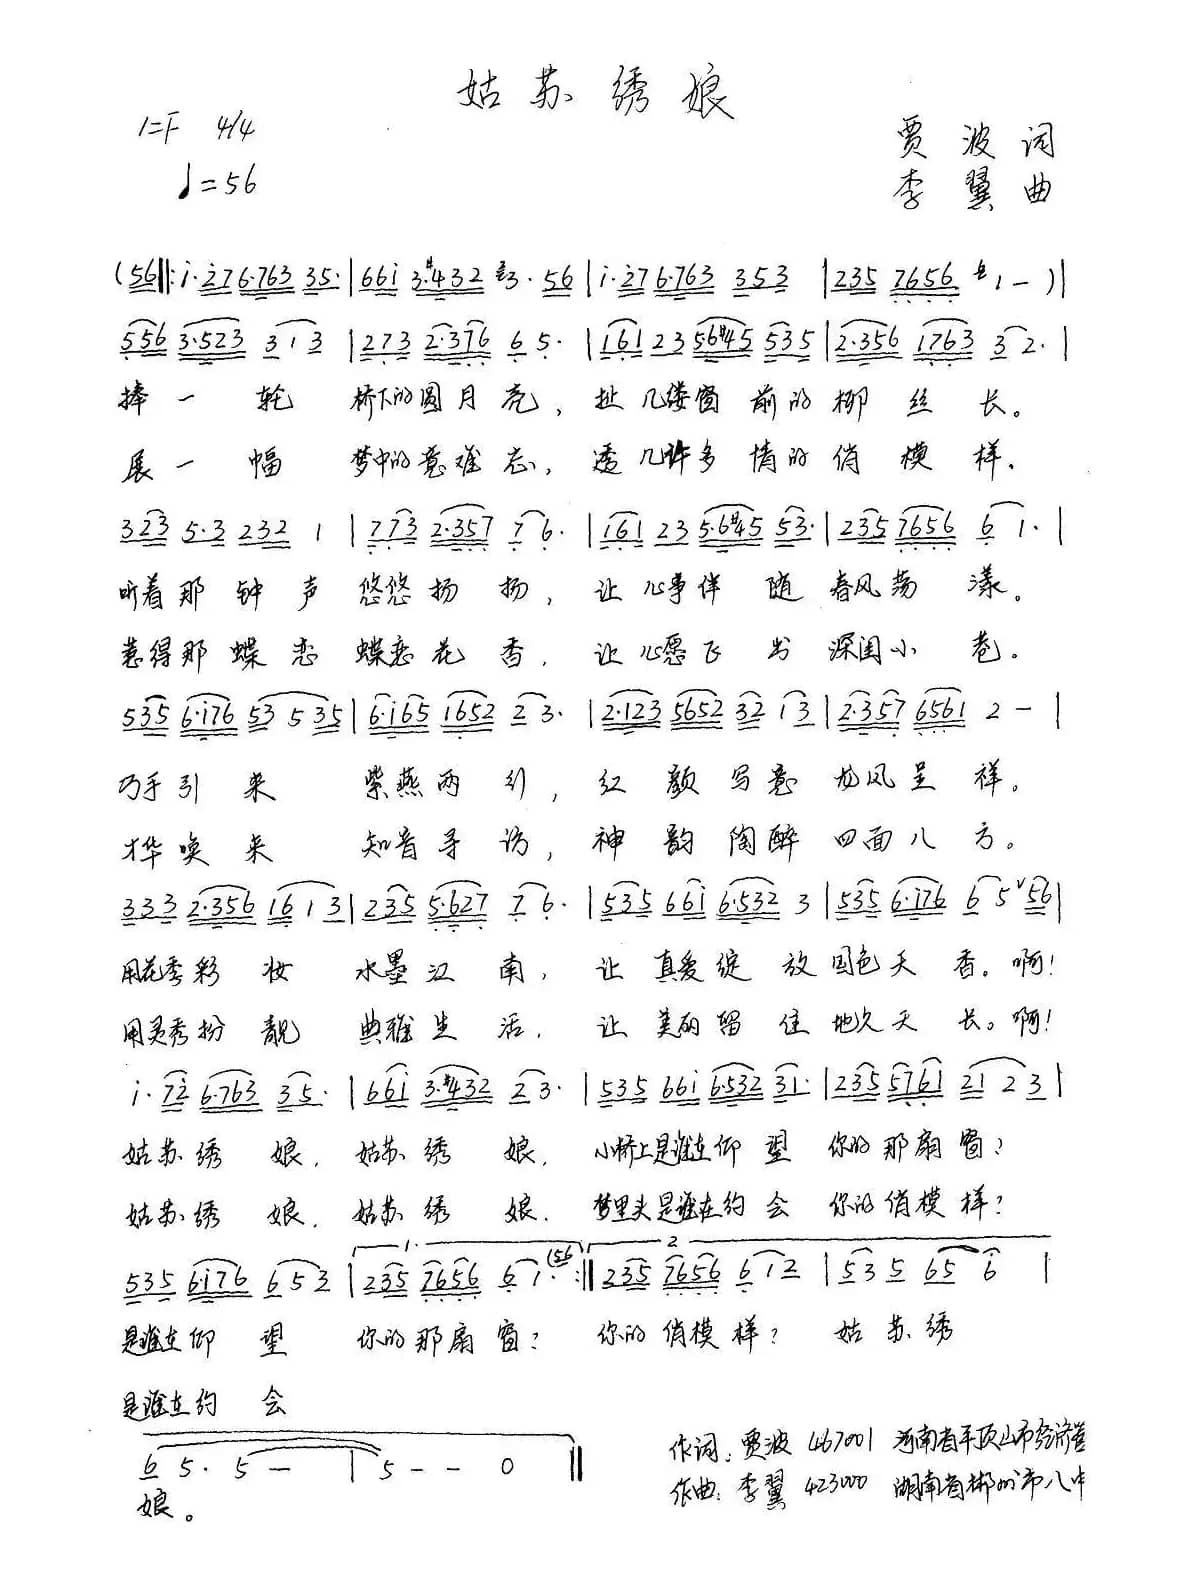 姑苏绣娘
1=F 4/4
贾波词
♩=56
李翼曲
(56‖:i·276·763 35·|66i 3·#432 3·56|i·276·763 353|235 7656 1-)|
556 3·523 313|273 2·376 65·|161 23 5·6#45 535|2·356 1763 32·|
捧一轮 桥下的圆月亮，扯几缕窗前的柳丝长。
展一幅 梦中的意难忘，透几许多情的俏模样。
323 5·3 232 1|773 2·357 76·|161 23 5·6#45 53·|235 7656 61·|
听着那钟声悠悠扬扬，让心事伴随春风荡漾。
惹得那蝶恋蝶恋花香，让心愿飞出深闺小巷。
535 6·i76 53 535|6·i65 1652 23·|2·123 5652 32 13|2·357 6561 2-|
巧手引来紫燕两行，红颜写意龙风呈祥。
才华唤来知音寻访，神韵陶醉四面八方。
333 2·356 16 13|235 5·627 76·|535 66i 6·532 3|535 6·i76 65ˇ56|
用花秀彩妆水墨江南，让真爱绽放国色天香。啊！
用灵秀扮靓典雅生活，让美丽留住地久天长。啊！
i·7i 6·763 35·|66i 3·#432 23·|535 66i 6·532 31·|235 5761 21 23|
姑苏绣娘，姑苏绣娘，小桥上是谁在仰望你的那扇窗？
姑苏绣娘，姑苏绣娘，梦里头是谁在约会你的俏模样？
1. 2.
535 6i76 653|235 7656 61·(56:‖235 7656 612|535 65 6|
是谁在仰望你的那扇窗？你的俏模样？姑苏绣
是谁在约会
65·5-|5--0‖
娘。
作词：贾波 467001 河南省平顶山市经济
作曲：李翼 423000 湖南省郴州市八中